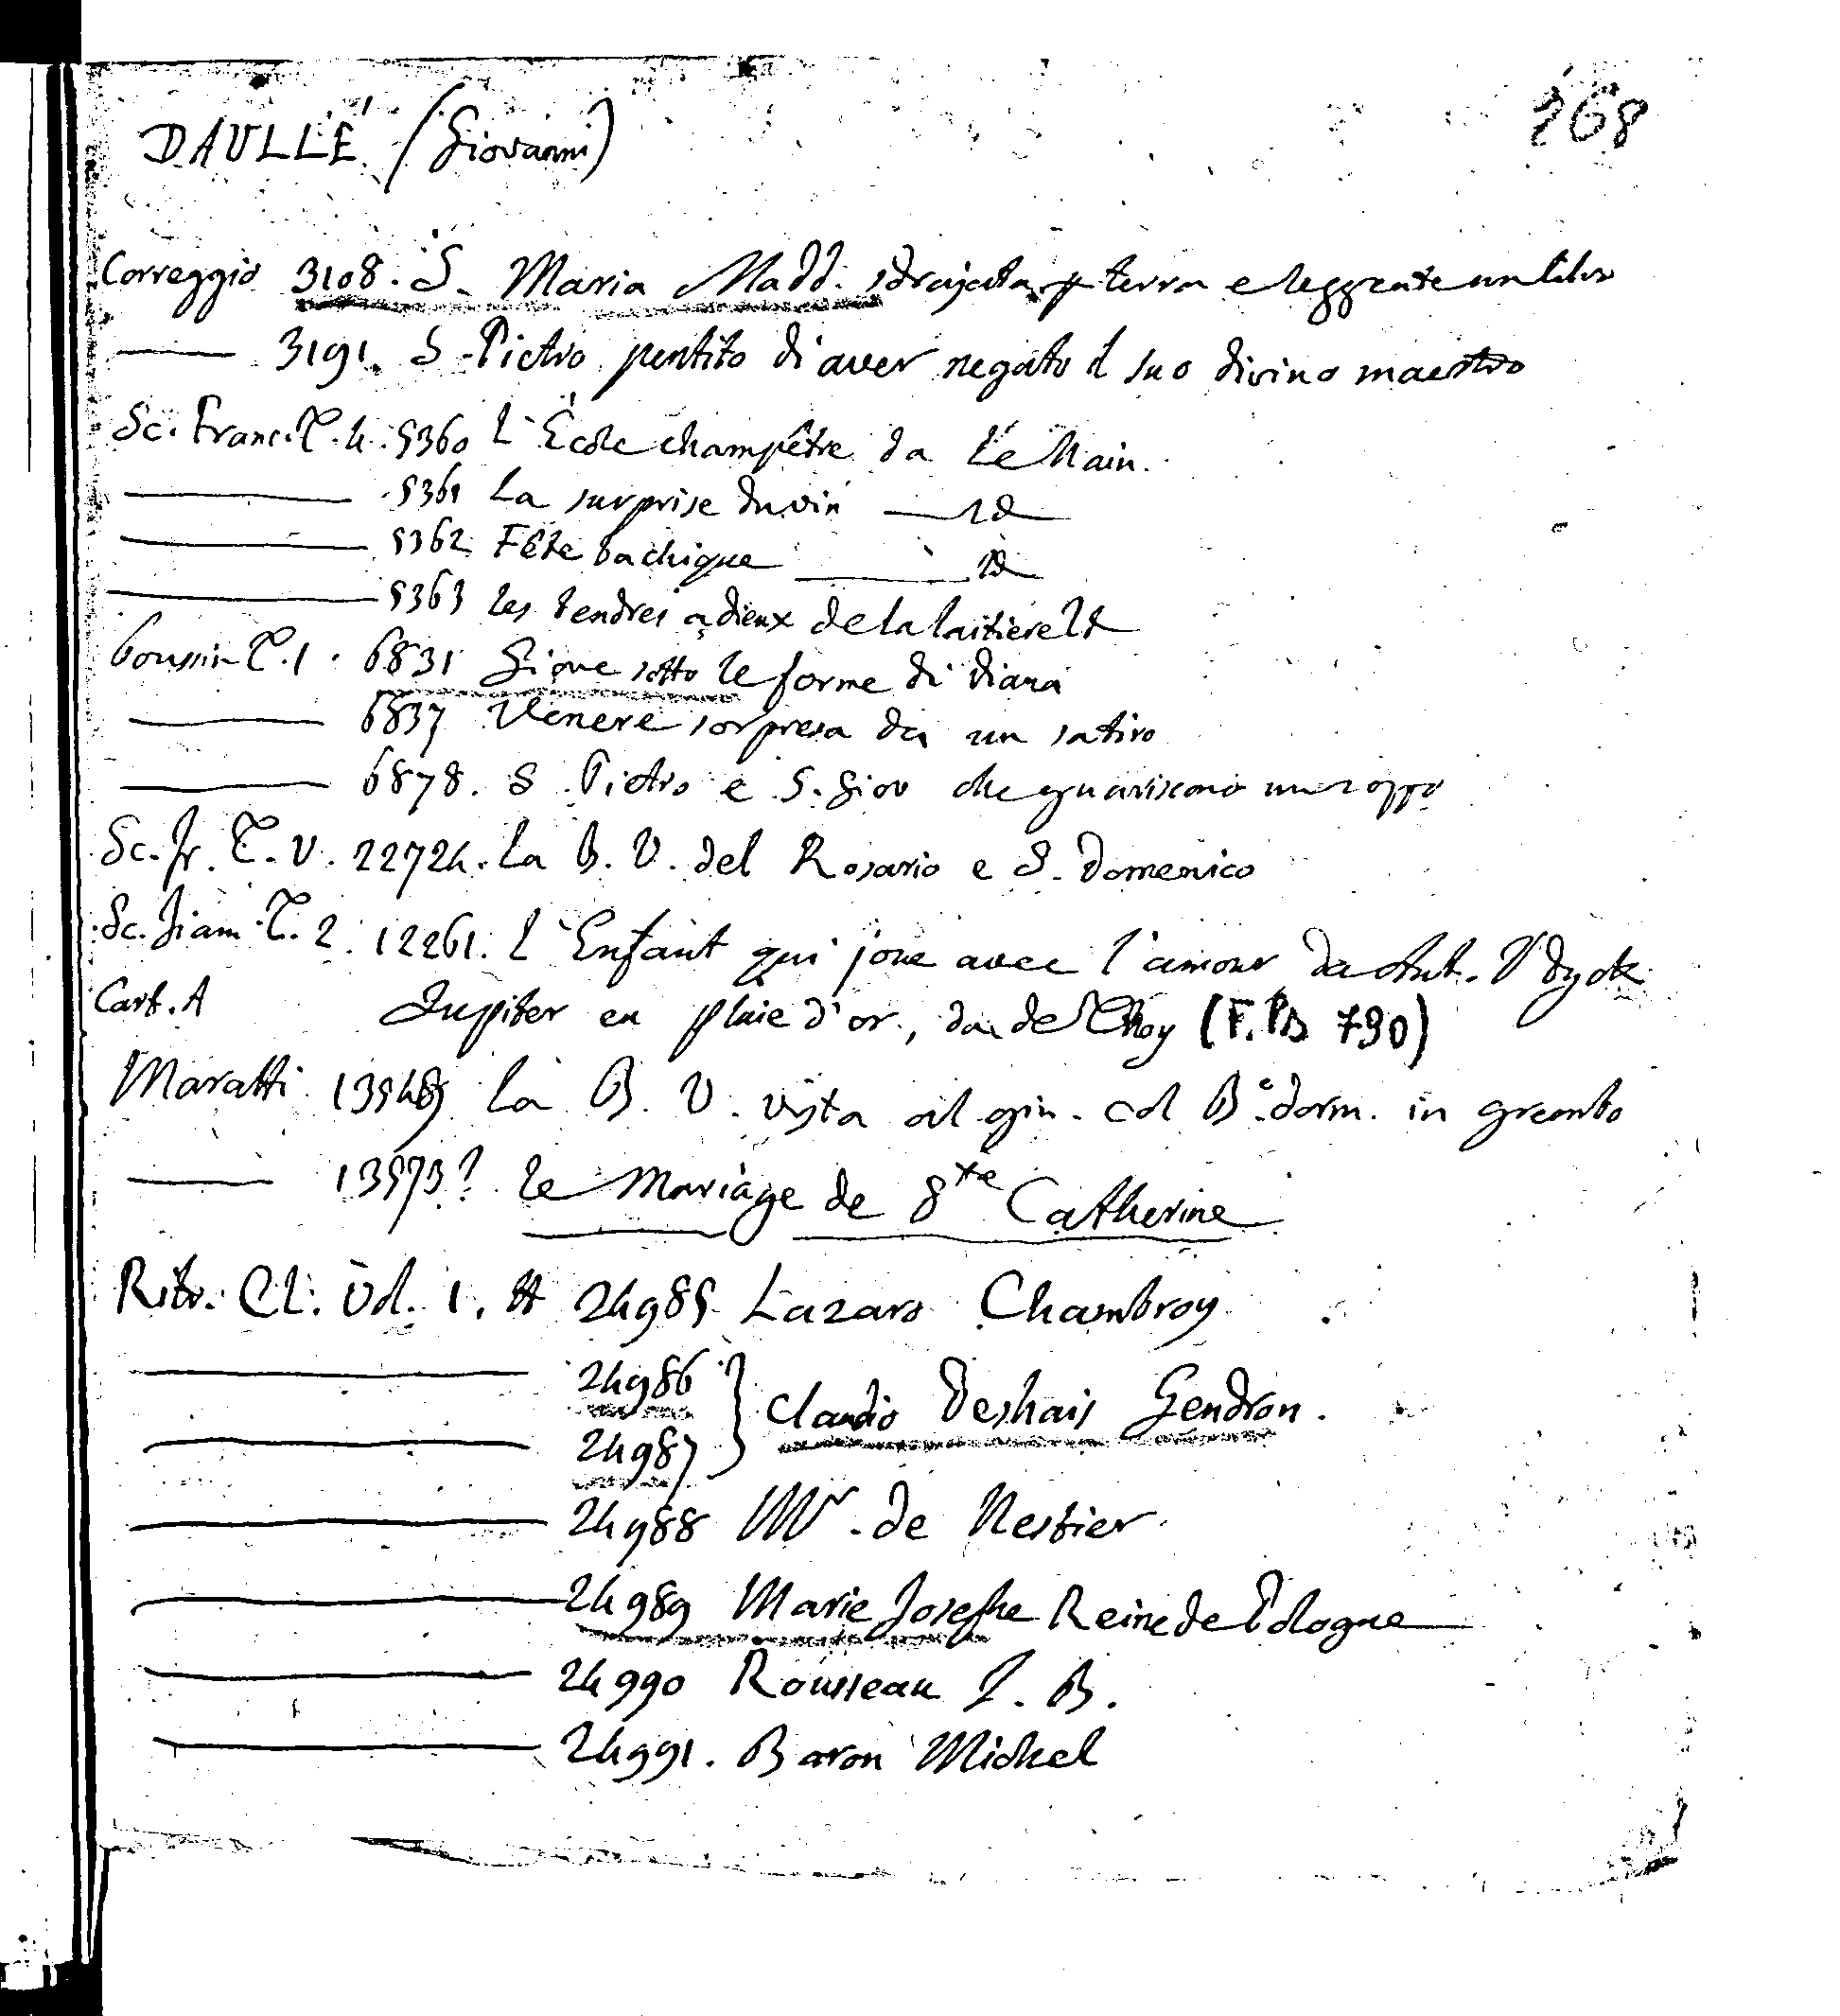 268
DAULLÉ (Giovanni)
Correggio 3108. S. Maria Madd. sdrajata p terra e leggente un libro
—— 3191. S. Pietro pentito di aver negato il suo divino maestro
Sc. Franc. T. 4. 5360 L'École champêtre da Le Nain.
—— 5361 La surprise du vin —— Id
—— 5362 Fête bachique —— Id
—— 5363 Les tendres adieux de la laitière Id
Poussin T. 1. 6831 Giove sotto le forme di Diana
—— 6837 Venere sorpresa da un satiro
—— 6878. S. Pietro e S. Giov che guariscono un zoppo
Sc. fr. T. V. 22724. La B. V. del Rosario e S. Domenico
Sc. fiam. T. 2. 12261. L'Enfant qui joue avec l'amour da Ant. V Dyck
Cart. A Jupiter en pluie d'or, da de Troy (F. PB 790)
Maratti 13548 La B. V. vista al gin. col B.e dorm. in grembo
—— 13573? Le Mariage de Ste Catherine
Ritr. Cl. Vol. 1. 24985 Lazaro Chambroy
—— 24986 } Claudio Deshais Gendron.
—— 24987
—— 24988 Mr. de Nestier
—— 24989 Marie Josephe Reine de Pologne
—— 24990 Rousseau J. B.
—— 24991. Baron Michel